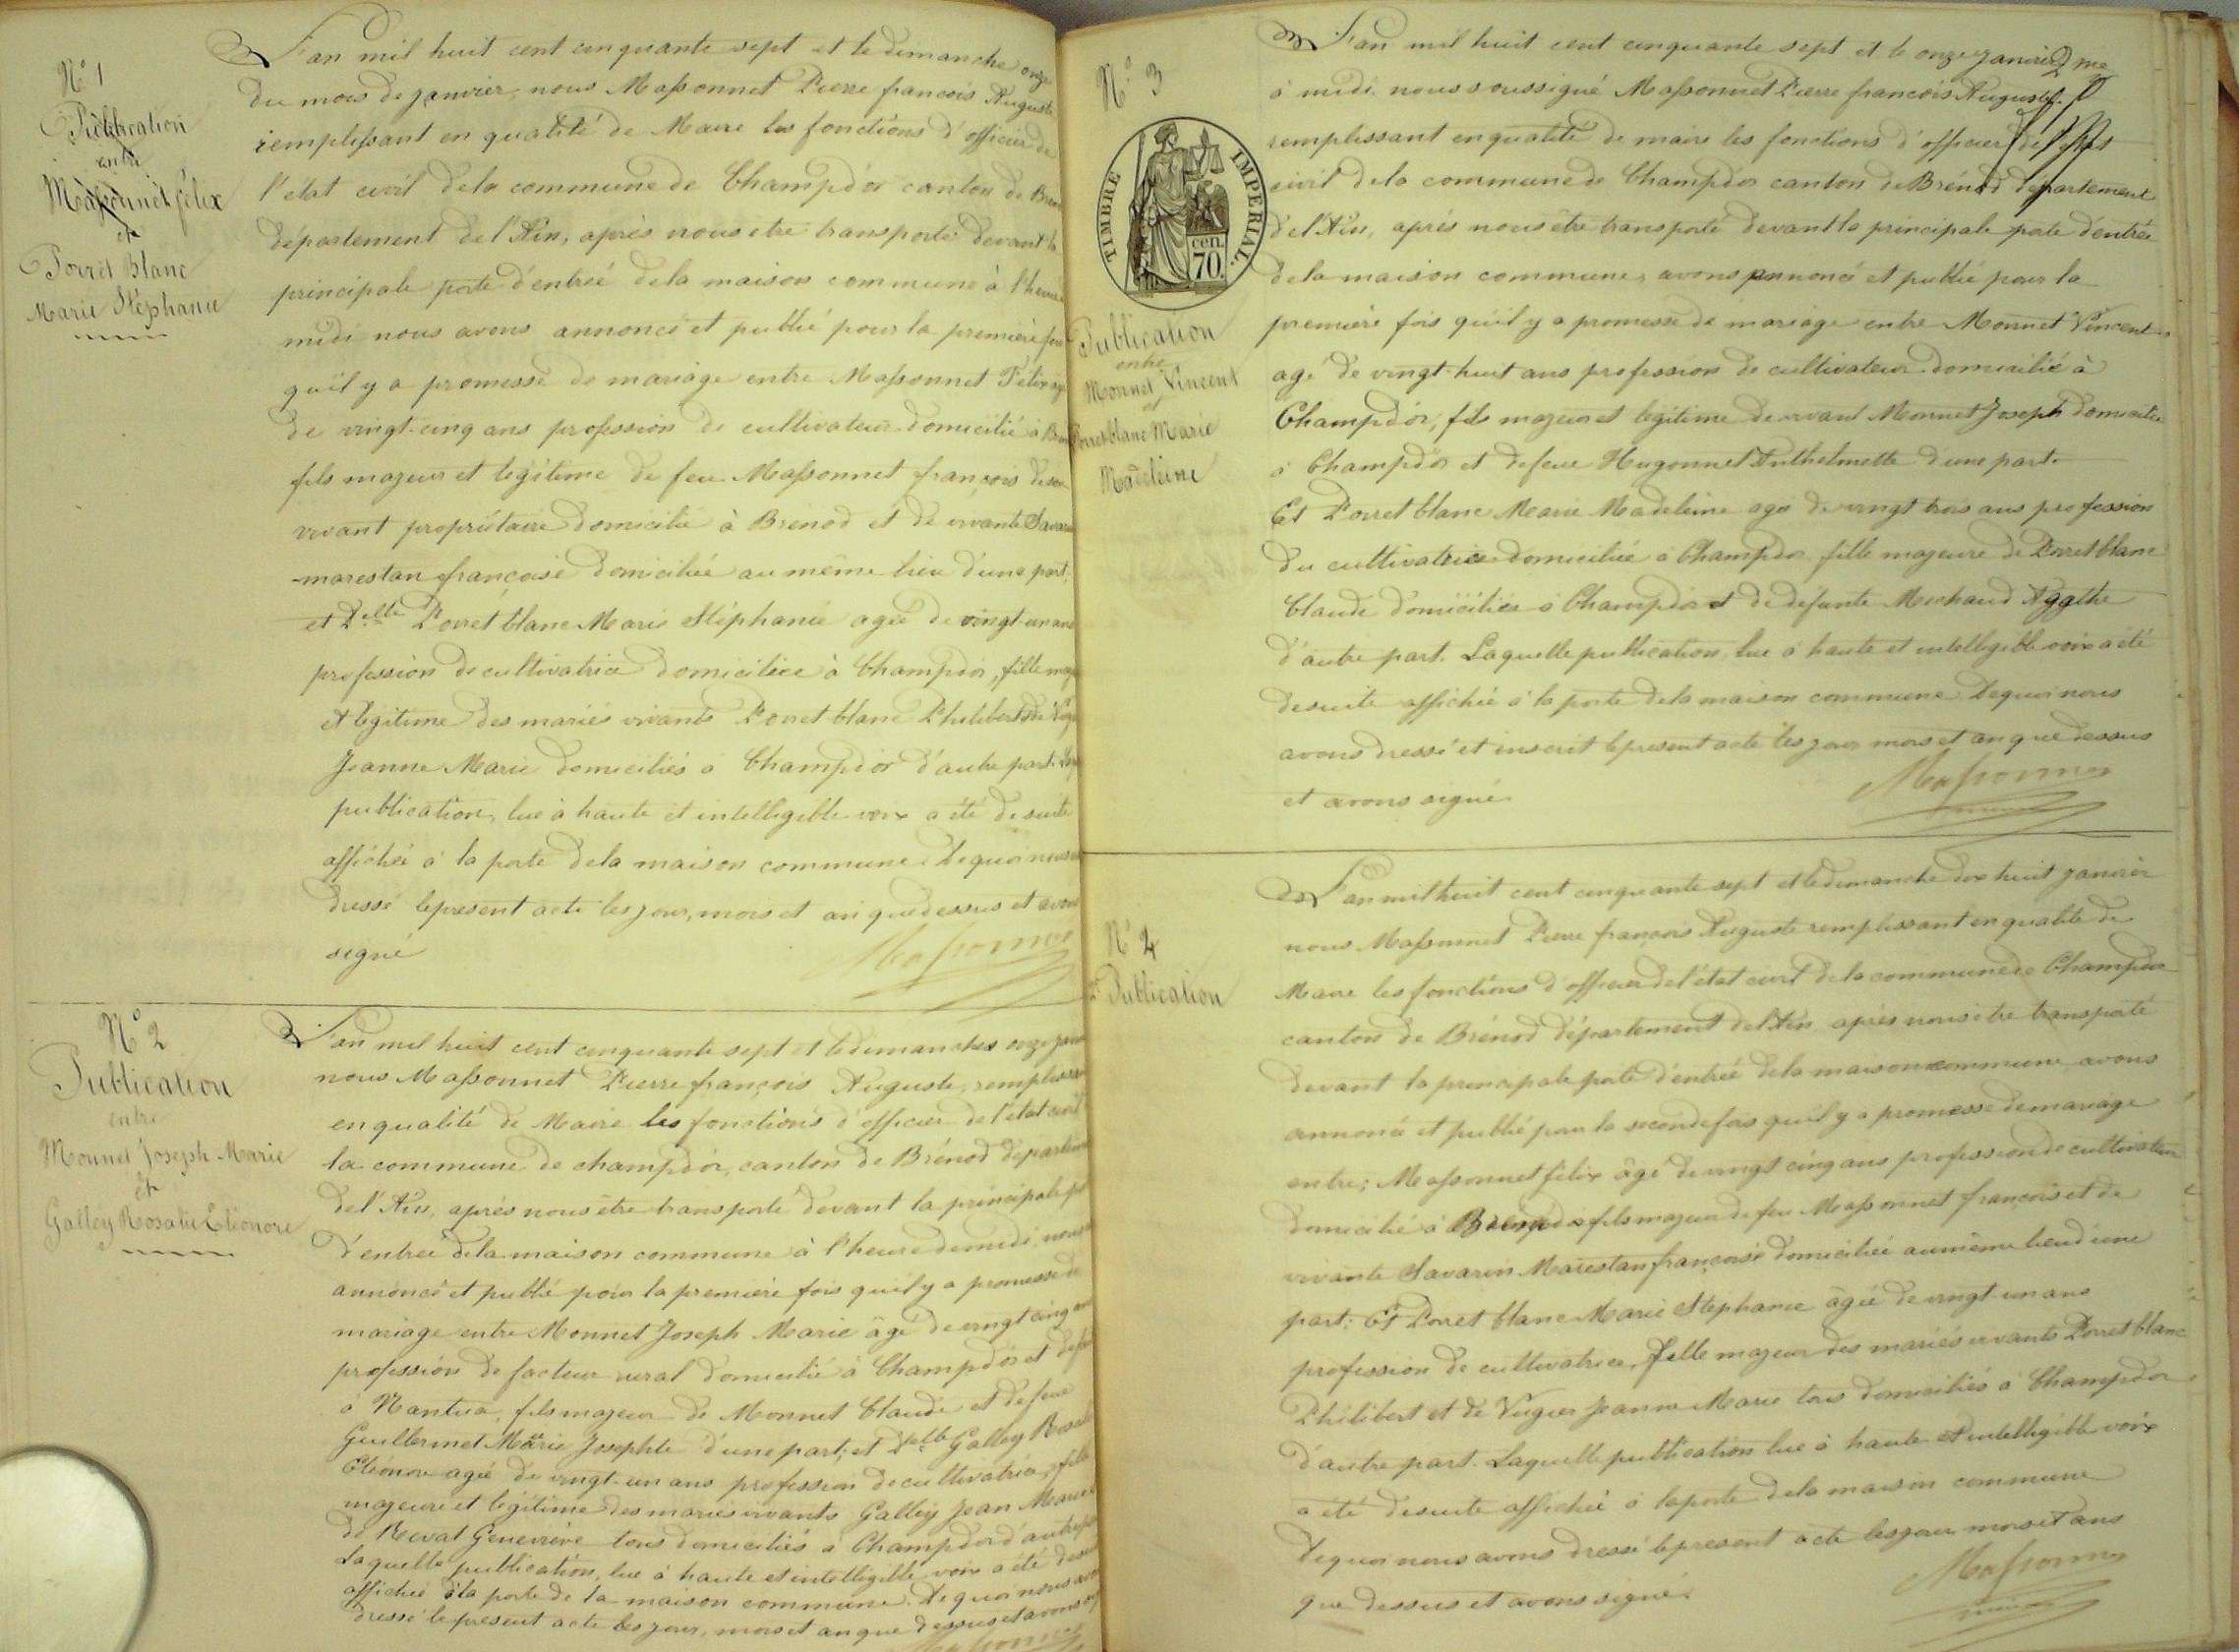 N° 1
Publication
entre
Massonnet félix
et
Porret Blanc
Marie Stéphanie
L'an mil huit cent cinquante sept et le dimanche onze
du mois de janvier, nous Massonnet Pierre françois Auguste
remplissant en qualité de Maire les fonctions d'officier de
l'état civil dela commune de Champdor canton de
département de l'Ain, après nous etre transporté devant la
principale porte d'entrée dela maison commune à l'heure
midi nous avons annoncé et publié pour la première fois
qu'il y a promesse de mariage entre Massonnet Félix
de vingt-cinq ans profession de cultivateur domicilié à
fils majeur et légitime de feu Massonnet françois
vivant propriétaire domicilié à Brénod et de vivante Savarin
marestan françoise domiciliée au même lieu d'une part.
et Delle Porret blanc Marie Stéphanie agée de vingt-un ans
profession de cultivatrice domiciliée à Champdor, fille
et légitime des mariés vivants Porret blanc Philibert
Jeanne Marie domiciliés à Champdor d'autre part.
publication, lue à haute et intelligible voix a été de suite
affichée à la porte dela maison commune Dequoi nous
dressé leprésent acte les jour, mois et an que dessus et avons
signé
Massonnet
N° 2
Publication
entre
Monnet Joseph Marie
et
Galley Rosalie Eléonore
L'an mil huit cent cinquante sept et le dimanche onze
nous Massonnet Pierre françois Auguste, remplissant
en qualité de Maire les fonctions d'officier de l'état civil
la commune de champdor, canton de Brénod département
de l'Ain, après nous être transporté devant la principale
d'entrée dela maison commune à l'heure de midi, nous
annoncé et publié pour la première fois qu'il y a promesse de
mariage entre Monnet Joseph Marie âgé de vingt cinq ans
profession de facteur rural domicilié à Champdor et
à Nantua, fils majeur de Monnet Claude et de feue
Guillermet Marie Josephte d'une part; et Delle Galley
Eléonore agée de vingt-un ans profession de cultivatrice, fille
majeure et légitime des mariés vivants Galley Jean Marie
de Revat Geneviève tous domiciliés à Champdor
Laquelle publication, lue à haute et intelligible voix a été
affichée à la porte de la maison commune. Dequoi nous avons
dressé leprésent acte les jour, mois et an que dessus et avons
Massonnet
N° 3
TIMBRE IMPERIAL.
cen.
70.
Publication
entre
Monnet Vincent
et
Porretblanc Marie
Madeleine
L'an mil huit cent cinquante sept et le onze janvier
à midi nous soussigné Massonnet Pierre françois Auguste
remplissant en qualité de maire les fonctions d'officier de l'état
civil dela commune de Champdor canton de Brénod département
del'Ain, après nous etre transporté devant la principale porte d'entrée
dela maison commune, avons annoncé et publié pour la
première fois qu'il y a promesse de mariage entre Monnet Vincent
agé de vingt-huit ans profession de cultivateur domicilié à
Champdor, fils majeur et légitime de vivant Monnet Joseph domicilié
à Champdor et defeue Hugonnet Anthelmette d'une part.
Et Porret blanc Marie Madeleine agée de vingt trois ans profession
du cultivatrice domiciliée à Champdor fille majeure de Porretblanc
Claude domicilié à Champdor et de défunte Michaud Agathe
d'autre part. Laquelle publication lue à haute et intelligible voix a été
desuite affichée à la porte dela maison commune Dequoi nous
avons dressé et inscrit leprésent acte les jour mois et an que dessus
et avons signé.
Massonnet
N° 4
Publication
L'an mil huit cent cinquante sept et le dimanche dix huit janvier
nous Massonnet Pierre françois Auguste remplissant en qualité de
Maire les fonctions d'officier de l'état civil de la commune de Champdor
canton de Brénod département del'Ain après nous etre transporté
devant la principale porte d'entrée dela maison commune avons
annoncé et publié pour la seconde fois qu'il y a promesse de mariage
entre: Massonnet félix âgé de vingt cinq ans profession de cultivateur
domicilié à fils majeur de feu Massonnet françois et de
vivante Savarin Marestan françoise domiciliée au même lieu d'une
part; Et Porret blanc Marie Stéphanie âgée de vingt-un ans
profession de cultivatrice, fille majeur des mariés vivants Porret blanc
Philibert et de Jeanne Marie tous domiciliés à Champdor
d'autre part. Laquelle publication lue à haute et intelligible voix
a été desuite affichée à laporte dela maison commune
Dequoi nous avons dressé leprésent acte les jour mois et ans
que dessus et avons signé.
Massonnet